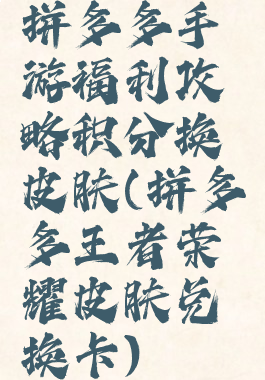 拼多多手
游福利攻
略积分换
皮肤(拼多
多王者荣
耀皮肤兑
换卡)